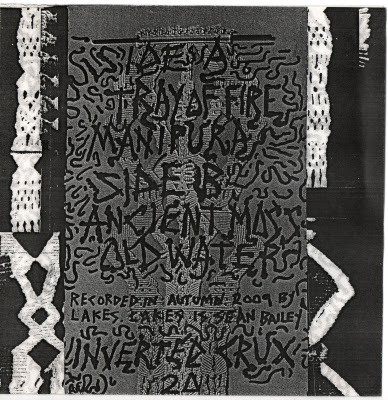 SIDE A
TRAY OF FIRE
MANIPURA
SIDE B
ANCIENT MOSS
OLD WATER
RECORDED IN AUTUMN 2009 BY
LAKES. LAKES IS SEAN BAILEY
INVERTED CRUX
20